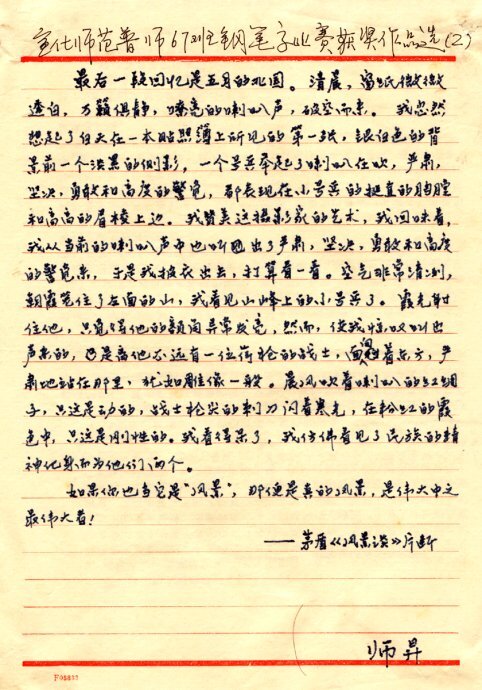 宣化师范普师67班钢笔字比赛获奖作品选(2)
最后一段回忆是五月的北国。清晨，窗纸微微
透白，万籁俱静，嘹亮的喇叭声，破空而来。我忽然
想起了白天在一本贴照簿上所见的第一张，银白色的背
景前一个淡黑的侧影，一个号兵举起了喇叭在吹，严肃，
坚决，勇敢和高度的警觉，都表现在小号兵的挺直的胸膛
和高高的眉棱上边。我赞美这摄影家的艺术，我回味着，
我从当前的喇叭声中也听出了严肃，坚决，勇敢和高度
的警觉来，于是我披衣出去，打算看一看。空气非常清冽，
朝霞笼住了左面的山，我看见山峰上的小号兵了。霞光射
住他，只觉得他的额角异常发亮，然而，使我惊叹叫出
声来的，是离他不远有一位荷枪的战士，面迎着东方，严
肃地站在那里，犹如雕像一般。晨风吹着喇叭的红绸
子，只这是动的，战士枪尖的刺刀闪着寒光，在粉红的霞
色中，只这是刚性的。我看得呆了，我仿佛看见了民族的精
神化身而为他们两个。
如果你也当它是“风景”，那便是真的风景，是伟大中之
最伟大者！
——茅盾《风景谈》片断
师昇
F05833